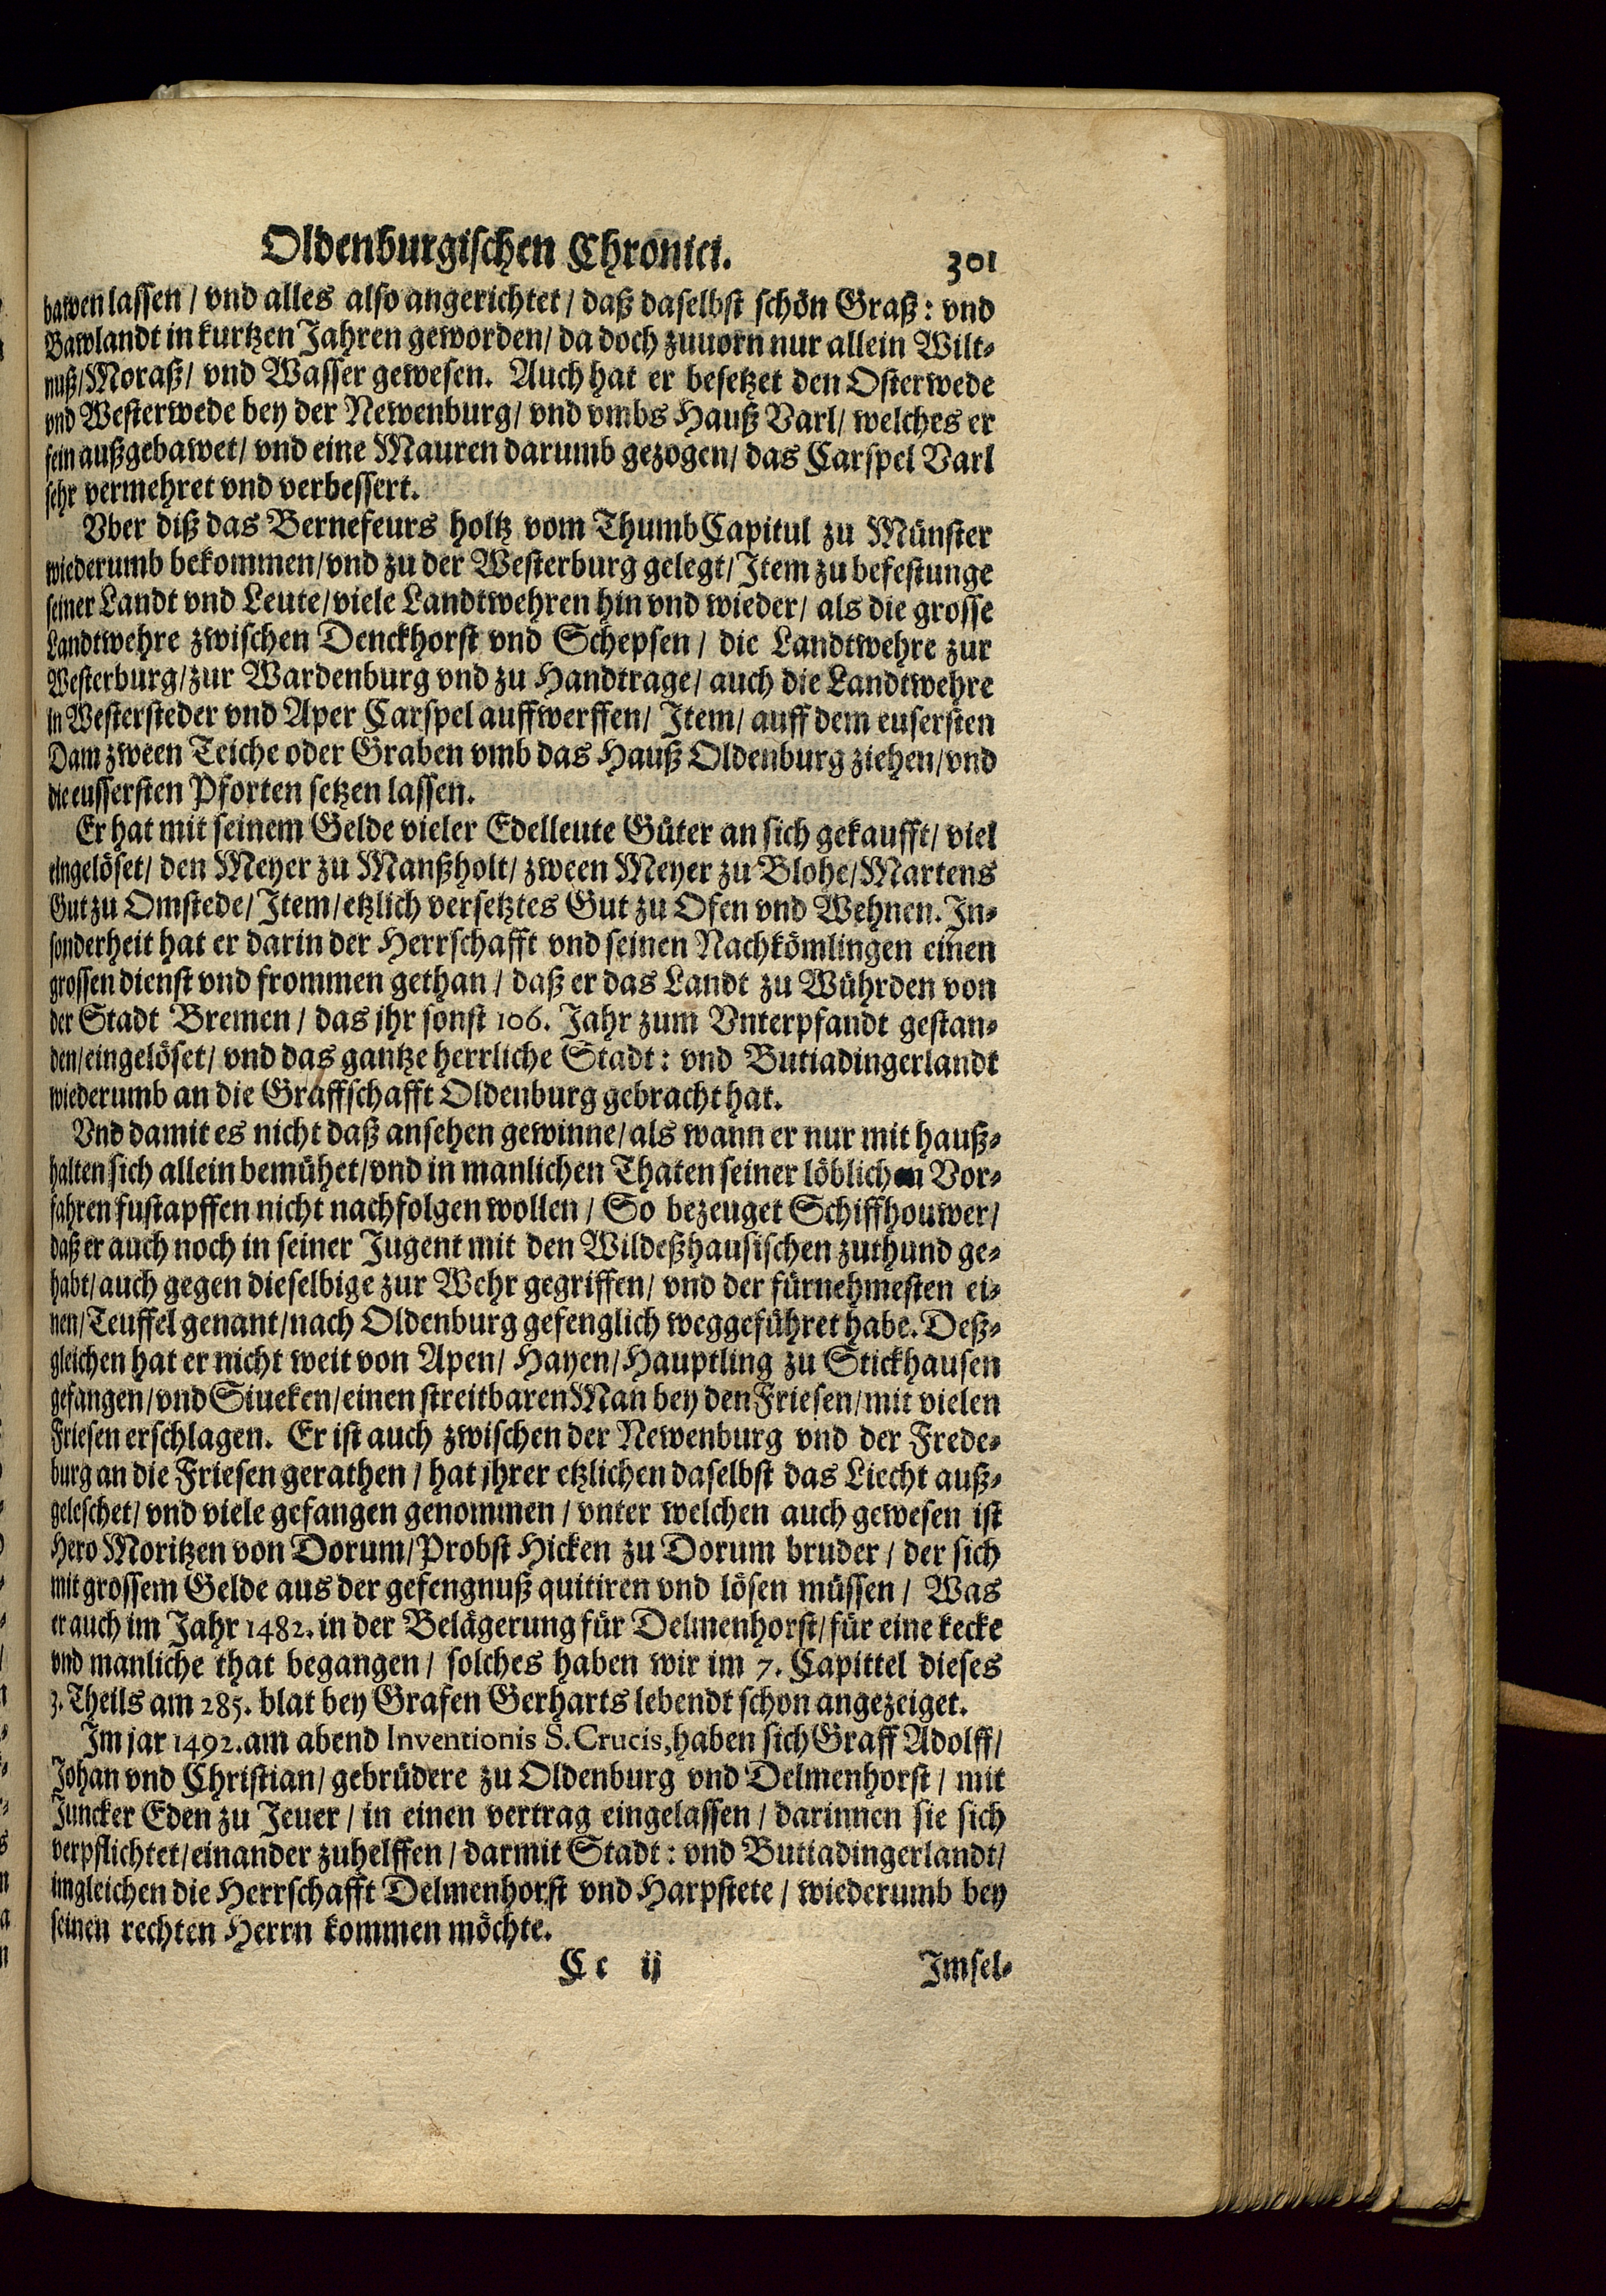 Oldenburgischen Chronici. 301
bawen lassen / vnd alles also angerichtet / daß daselbst schön Graß: vnd
Bawlandt in kurtzen Jahren geworden / da doch zuuorn nur allein Wilt-
nuß / Moraß / vnd Wasser gewesen. Auch hat er besetzet den Osterwede
vnd Westerwede bey der Newenburg / vnd vmbs Hauß Varl / welches er
fein außgebawet / vnd eine Mauren darumb gezogen / das Carspel Varl
sehr vermehret vnd verbessert.
Vber diß das Bernefeurs holtz vom ThumbCapitul zu Münster
wiederumb bekommen / vnd zu der Westerburg gelegt / Item zu befestunge
seiner Landt vnd Leute / viele Landtwehren hin vnd wieder / als die grosse
Landtwehre zwischen Denckhorst vnd Schepsen / die Landtwehre zur
Westerburg / zur Wardenburg vnd zu Handtrage / auch die Landtwehre
in Westersteder vnd Aper Carspel auffwerffen / Item / auff dem eusersten
Dam zween Teiche oder Graben vmb das Hauß Oldenburg ziehen / vnd
die eussersten Pforten setzen lassen.
Er hat mit seinem Gelde vieler Edelleute Güter an sich gekaufft / viel
eingelöset / den Meyer zu Manßholt / zween Meyer zu Blohe / Martens
Gut zu Omstede / Item / etzlich versetztes Gut zu Ofen vnd Wehnen. In-
sonderheit hat er darin der Herrschafft vnd seinen Nachkömlingen einen
grossen dienst vnd frommen gethan / daß er das Landt zu Wührden von
der Stadt Bremen / das jhr sonst 106. Jahr zum Vnterpfandt gestan-
den / eingelöset / vnd das gantze herrliche Stadt: vnd Butiadingerlandt
wiederumb an die Graffschafft Oldenburg gebracht hat.
Vnd damit es nicht daß ansehen gewinne / als wann er nur mit hauß-
halten sich allein bemühet / vnd in manlichen Thaten seiner löblichen Vor-
fahren fustapffen nicht nachfolgen wollen / So bezeuget Schiffhouwer /
daß er auch noch in seiner Jugent mit den Wildeßhausischen zuthund ge-
habt / auch gegen dieselbige zur Wehr gegriffen / vnd der fürnehmesten ei-
nen / Teuffel genant / nach Oldenburg gefenglich weggeführet habe. Deß-
gleichen hat er nicht weit von Apen / Hayen / Hauptling zu Stickhausen
gefangen / vnd Siueken / einen streitbaren Man bey den Friesen / mit vielen
Friesen erschlagen. Er ist auch zwischen der Newenburg vnd der Frede-
burg an die Friesen gerathen / hat jhrer etzlichen daselbst das Liecht auß-
geleschet / vnd viele gefangen genommen / vnter welchen auch gewesen ist
Hero Moritzen von Dorum / Probst Hicken zu Dorum bruder / der sich
mit grossem Gelde aus der gefengnuß quitiren vnd lösen müssen / Was
er auch im Jahr 1482. in der Belägerung für Delmenhorst / für eine kecke
vnd manliche that begangen / solches haben wir im 7. Capittel dieses
3. Theils am 285. blat bey Grafen Gerharts lebendt schon angezeiget.
Im jar 1492. am abend Inventionis S. Crucis, haben sich Graff Adolff /
Johan vnd Christian / gebrüdere zu Oldenburg vnd Delmenhorst / mit
Juncker Eden zu Jeuer / in einen vertrag eingelassen / darinnen sie sich
verpflichtet / einander zuhelffen / darmit Stadt: vnd Butiadingerlandt /
imgleichen die Herrschafft Delmenhorst vnd Harpstete / wiederumb bey
seinen rechten Herrn kommen möchte.
Cc ij Imsel-